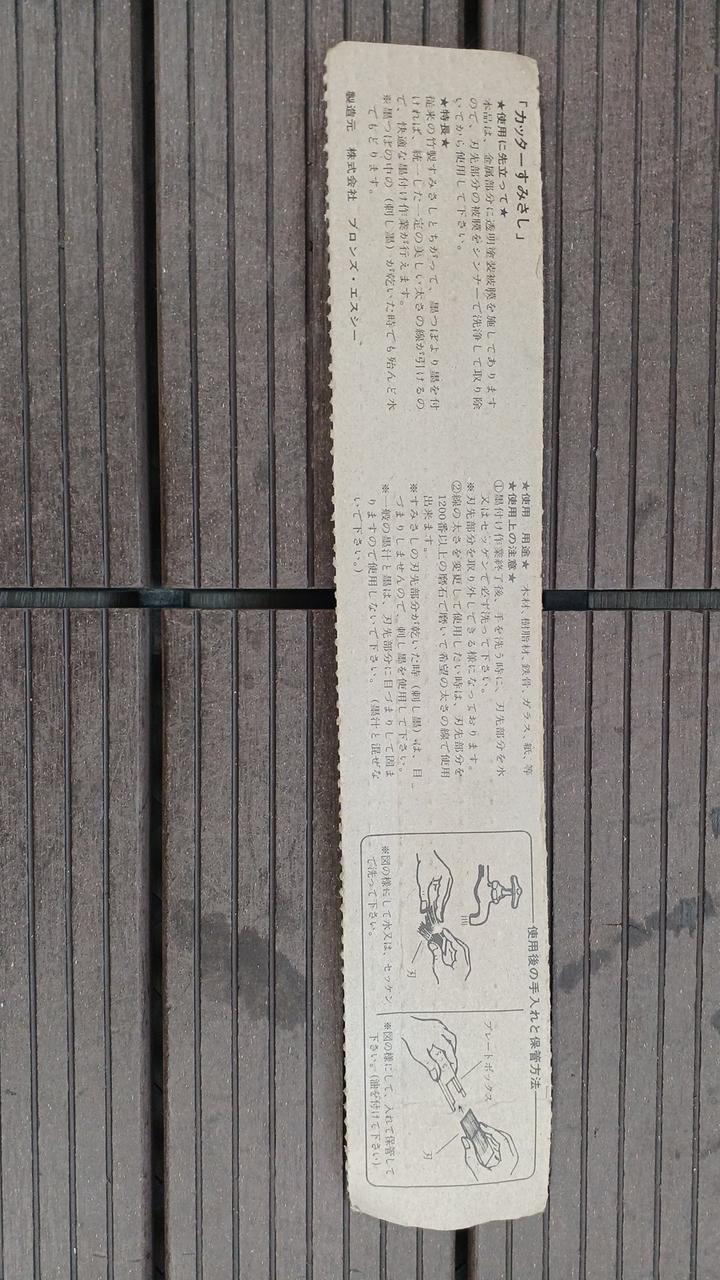 「カッターすみさし」
★使用に先立って★
本品は、金属部分に透明塗装被膜を施してあります
ので、刃先部分の被膜をシンナーで洗浄して取り除
いてから使用して下さい。
★特長★
従来の竹製すみさしとちがって、墨つぼより墨を付
ければ、統一した一定の美しい太さの線が引けるの
で、快適な墨付け作業が行えます。
※墨つぼの中の（刺し墨）が乾いた時でも殆んど水
でもどります。
製造元　株式会社　ブロンズ・エスシー
★使用　用途★　木材、樹脂材、鉄骨、ガラス、紙、等
★使用上の注意★
①墨付け作業終了後、手を洗う時に、刃先部分を水
又はセッケンで必ず洗って下さい。
※刃先部分を取り外しできる様になっております。
②線の太さを変更して使用したい時は、刃先部分を
1200番以上の磨石で磨いて希望の太さの線で使用
出来ます。
※すみさしの刃先部分が乾いた時（刺し墨）は、目
づまりしませんので、刺し墨を使用して下さい。
※一般の墨汁と墨は、刃先部分に目づまりして固ま
りますので使用しないで下さい。（墨汁と混ぜな
いで下さい。）
使用後の手入れと保管方法
刃
※図の様にして水又は、セッケン
で洗って下さい。
プレートボックス
刃
※図の様にして、入れて保管して
下さい。（油を付けて下さい）